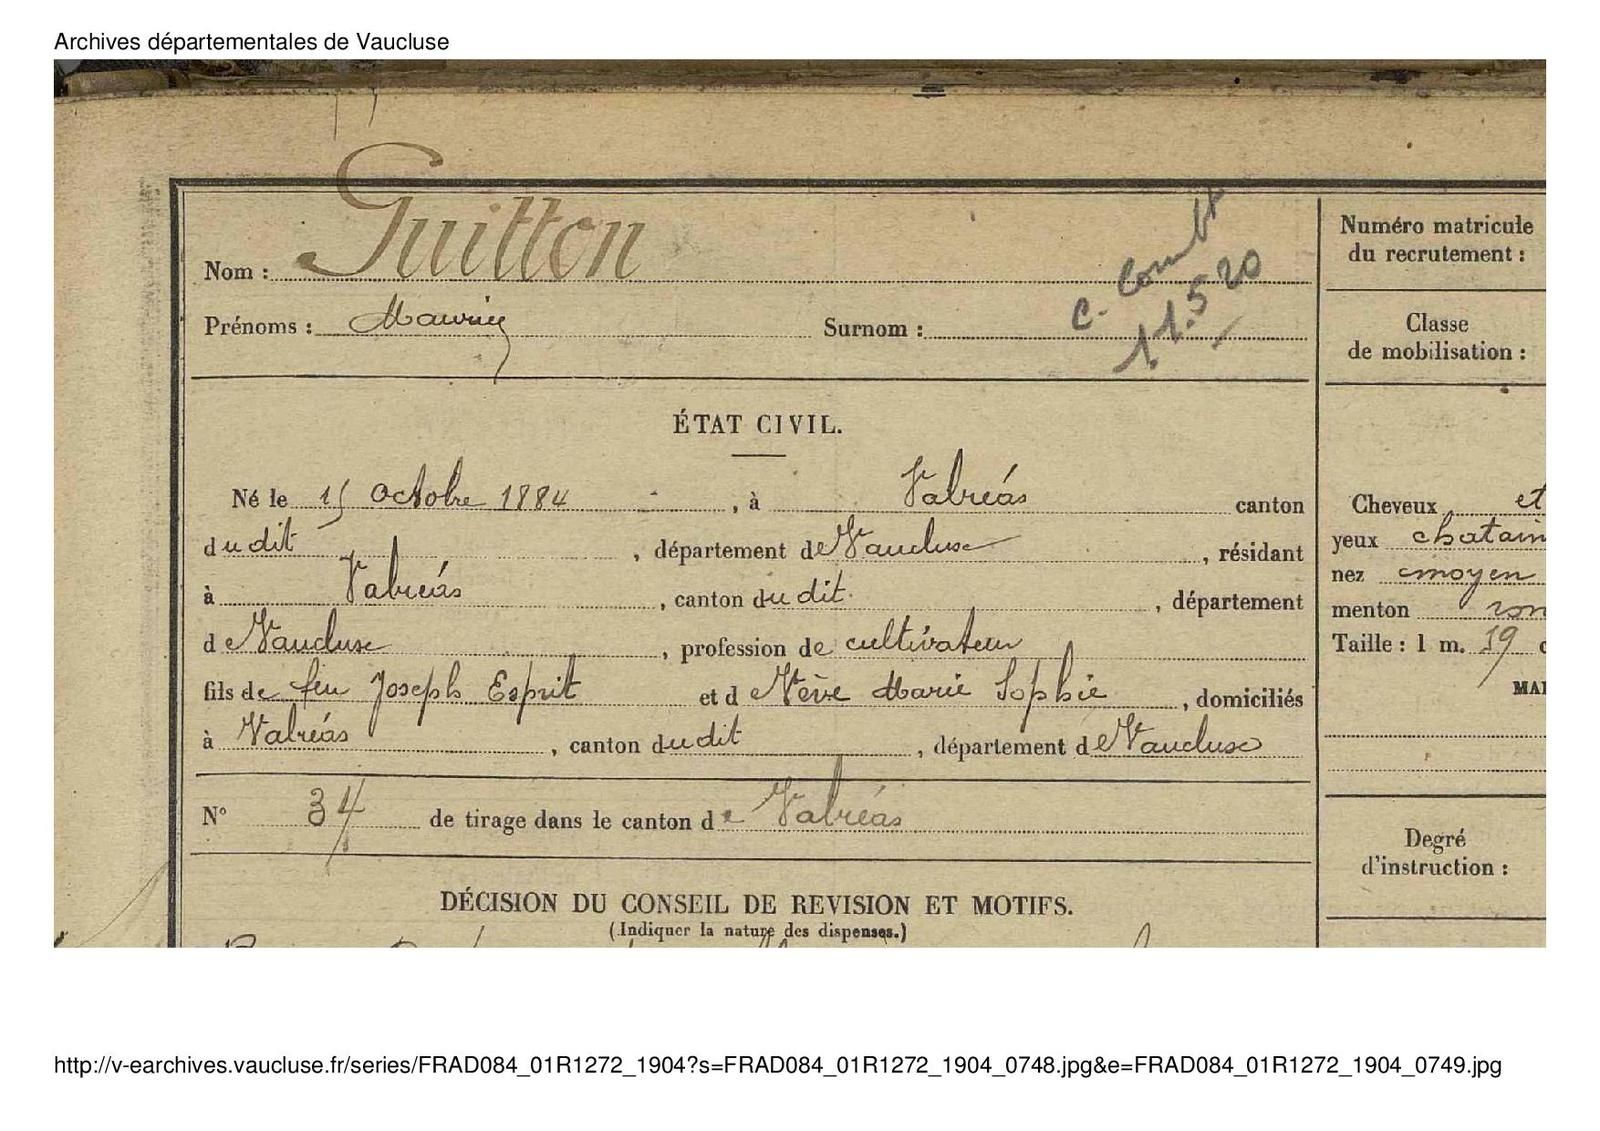 Archives départementales de Vaucluse
Guitton
Nom :
Prénoms : Maurice
Surnom :
C. Combt
11.5 20
Numéro matricule
du recrutement :
Classe
de mobilisation :
ÉTAT CIVIL.
Né le 15 octobre 1884 , à Valréas canton
du dit , département de Vaucluse , résidant
à Valréas , canton du dit. , département
de Vaucluse , profession de cultivateur
fils de feu Joseph Esprit et de Marie Sophie , domiciliés
à Valréas , canton du dit , département de Vaucluse
Cheveux et
yeux chatain
nez moyen
menton ron
Taille : 1 m. 59 c
MAR
N° 34 de tirage dans le canton de Valréas
Degré
d'instruction :
DÉCISION DU CONSEIL DE REVISION ET MOTIFS.
(Indiquer la nature des dispenses.)
http://v-earchives.vaucluse.fr/series/FRAD084_01R1272_1904?s=FRAD084_01R1272_1904_0748.jpg&e=FRAD084_01R1272_1904_0749.jpg